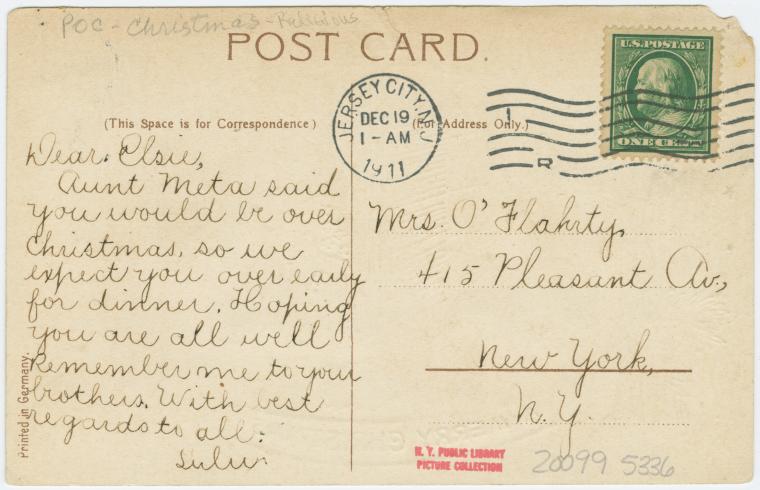 POC - Christmas - Religious
POST CARD.
U.S. POSTAGE
ONE CENT
JERSEY CITY, N.J.
DEC 19
1 - AM
1911
1
R
(This Space is for Correspondence)
(For Address Only.)
Dear Elsie,
Aunt Meta said
you would be over
Christmas, so we
expect you over early
for dinner. Hoping
you are all well
Remember me to your
brothers. With best
regards to all.
Lulu
Mrs. O'Flahrty,
415 Pleasant Av.,
New York,
N.Y.
Printed in Germany.
N. Y. PUBLIC LIBRARY
PICTURE COLLECTION
20099 5336